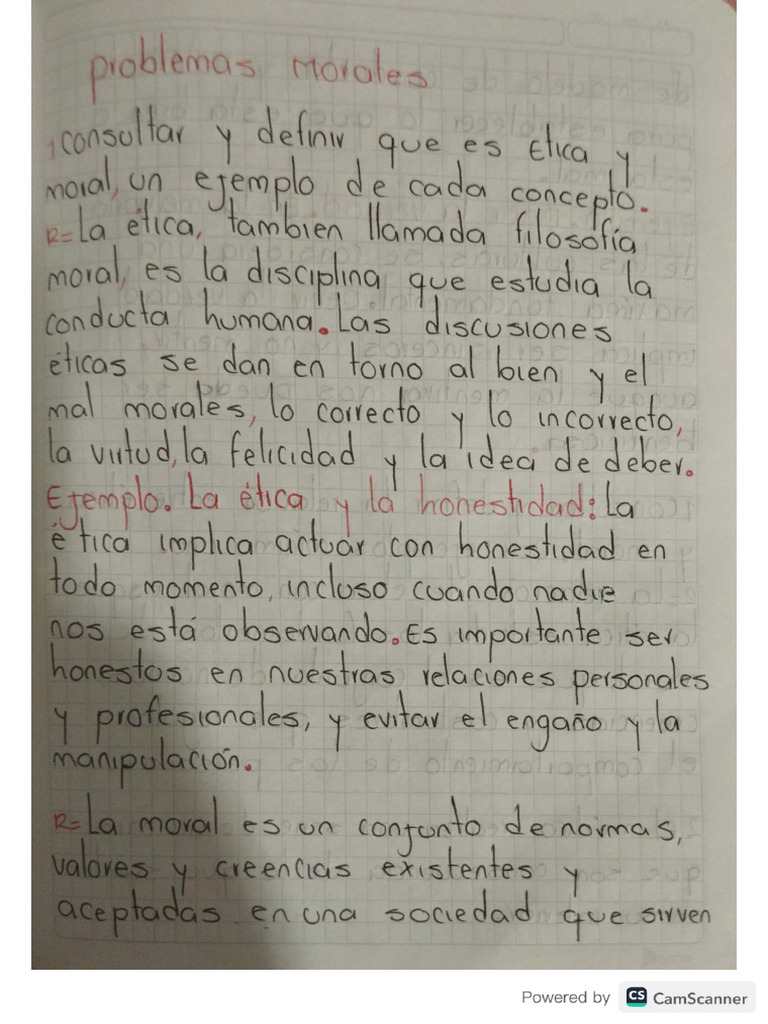 problemas Morales
1 consultar y definir que es Etica y
moral, un ejemplo de cada concepto.
R= La ética, tambien llamada filosofía
moral, es la disciplina que estudia la
conducta humana. Las discusiones
éticas se dan en torno al bien y el
mal morales, lo correcto y lo incorrecto,
la virtud, la felicidad y la idea de deber.
Ejemplo. La ética y la honestidad: La
ética implica actuar con honestidad en
todo momento, incluso cuando nadie
nos está observando. Es importante ser
honestos en nuestras relaciones personales
y profesionales, y evitar el engaño y la
manipulación.
R= La moral es un conjunto de normas,
valores y creencias existentes y
aceptadas en una sociedad que sirven
Powered by CS CamScanner